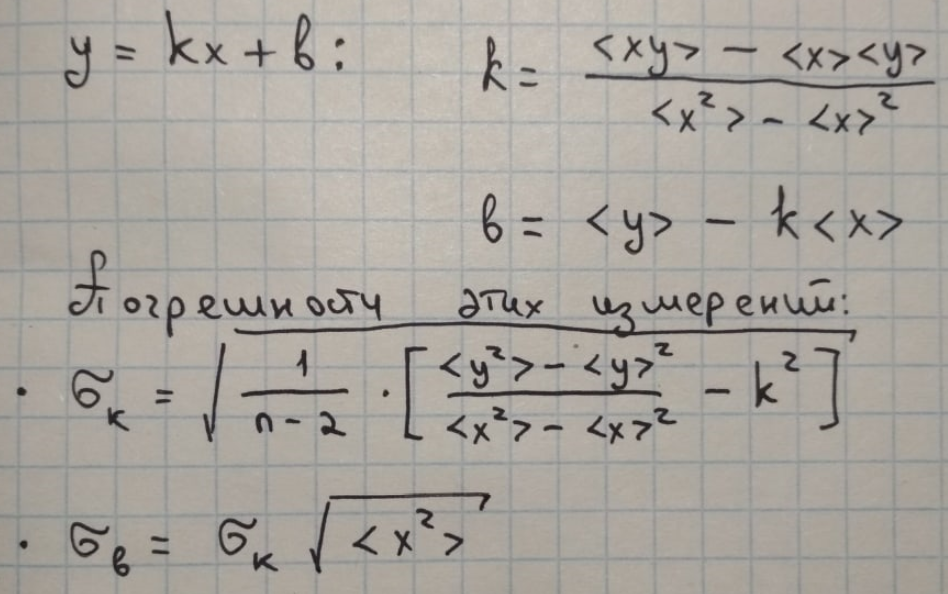 y = kx + b : k = (<xy> - <x><y>) / (<x²> - <x>²)
b = <y> - k<x>
Погрешности этих измерений:
· σₖ = √(1/(n-2) · [(<y²> - <y>²) / (<x²> - <x>²) - k²])
· σ_b = σₖ √(<x²>)